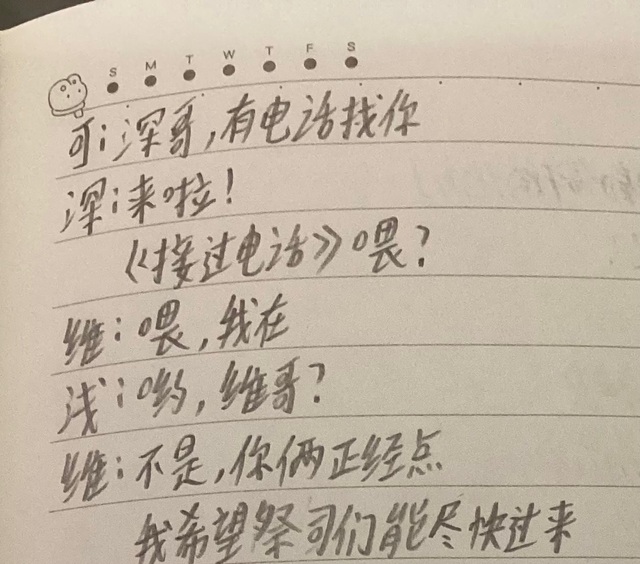 S M T W T F S
可：深哥，有电话找你
深：来啦！
《接过电话》喂？
维：喂，我在
浅：哟，维哥？
维：不是，你俩正经点
我希望祭司们能尽快过来